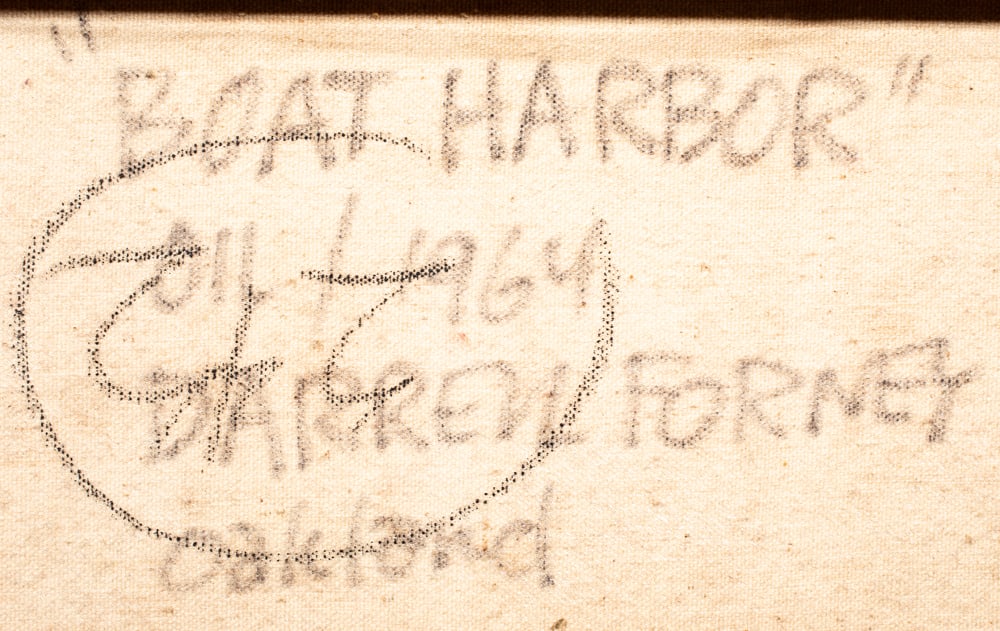 "BOAT HARBOR"
OIL / 1964
DARRELL FORNEY
oakland